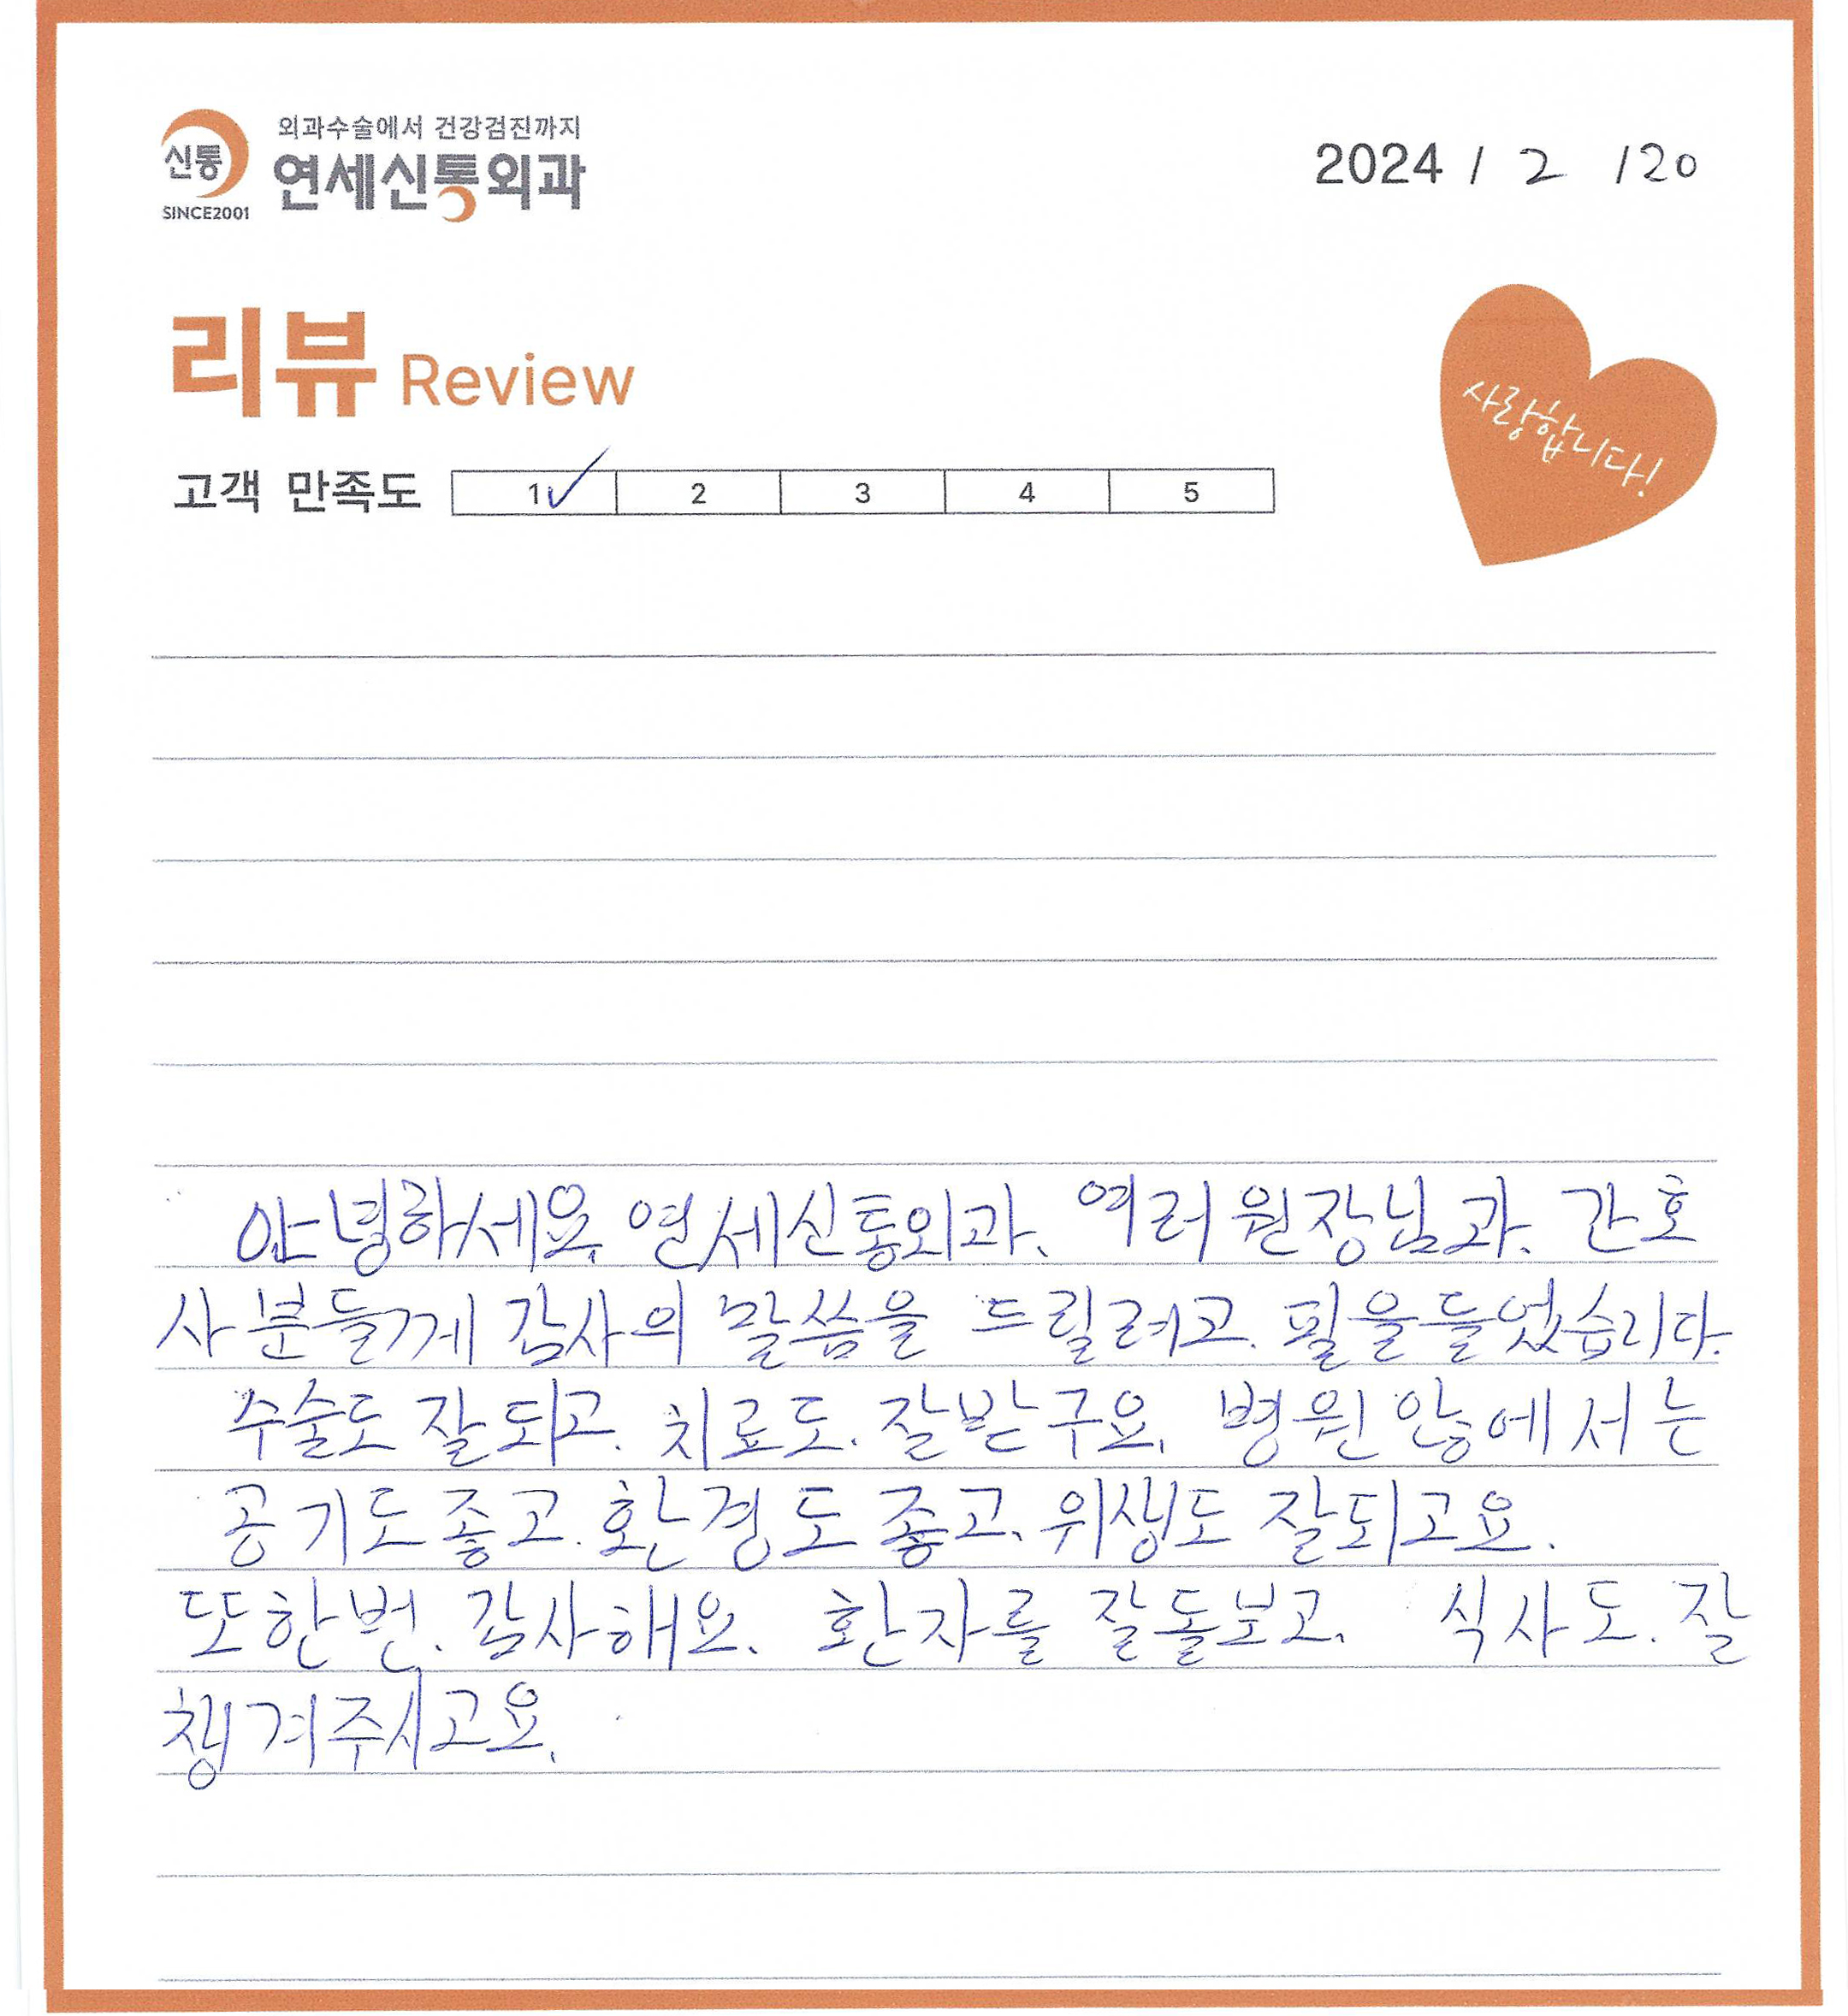 외과수술에서 건강검진까지
신통
연세신통외과
SINCE2001
2024 / 2 / 20
리뷰 Review
사랑합니다!
고객 만족도 1 2 3 4 5
안녕하세요, 연세신통외과, 여러 원장님과, 간호
사분들께 감사의 말씀을 드릴려고. 필을들었습니다.
수술도 잘되고. 치료도. 잘받구요, 병원 않에서는
공기도 좋고. 환경도 좋고, 위생도 잘되고요.
또한번, 감사해요, 환자를 잘돌보고, 식사도. 잘
챙겨주시고요,